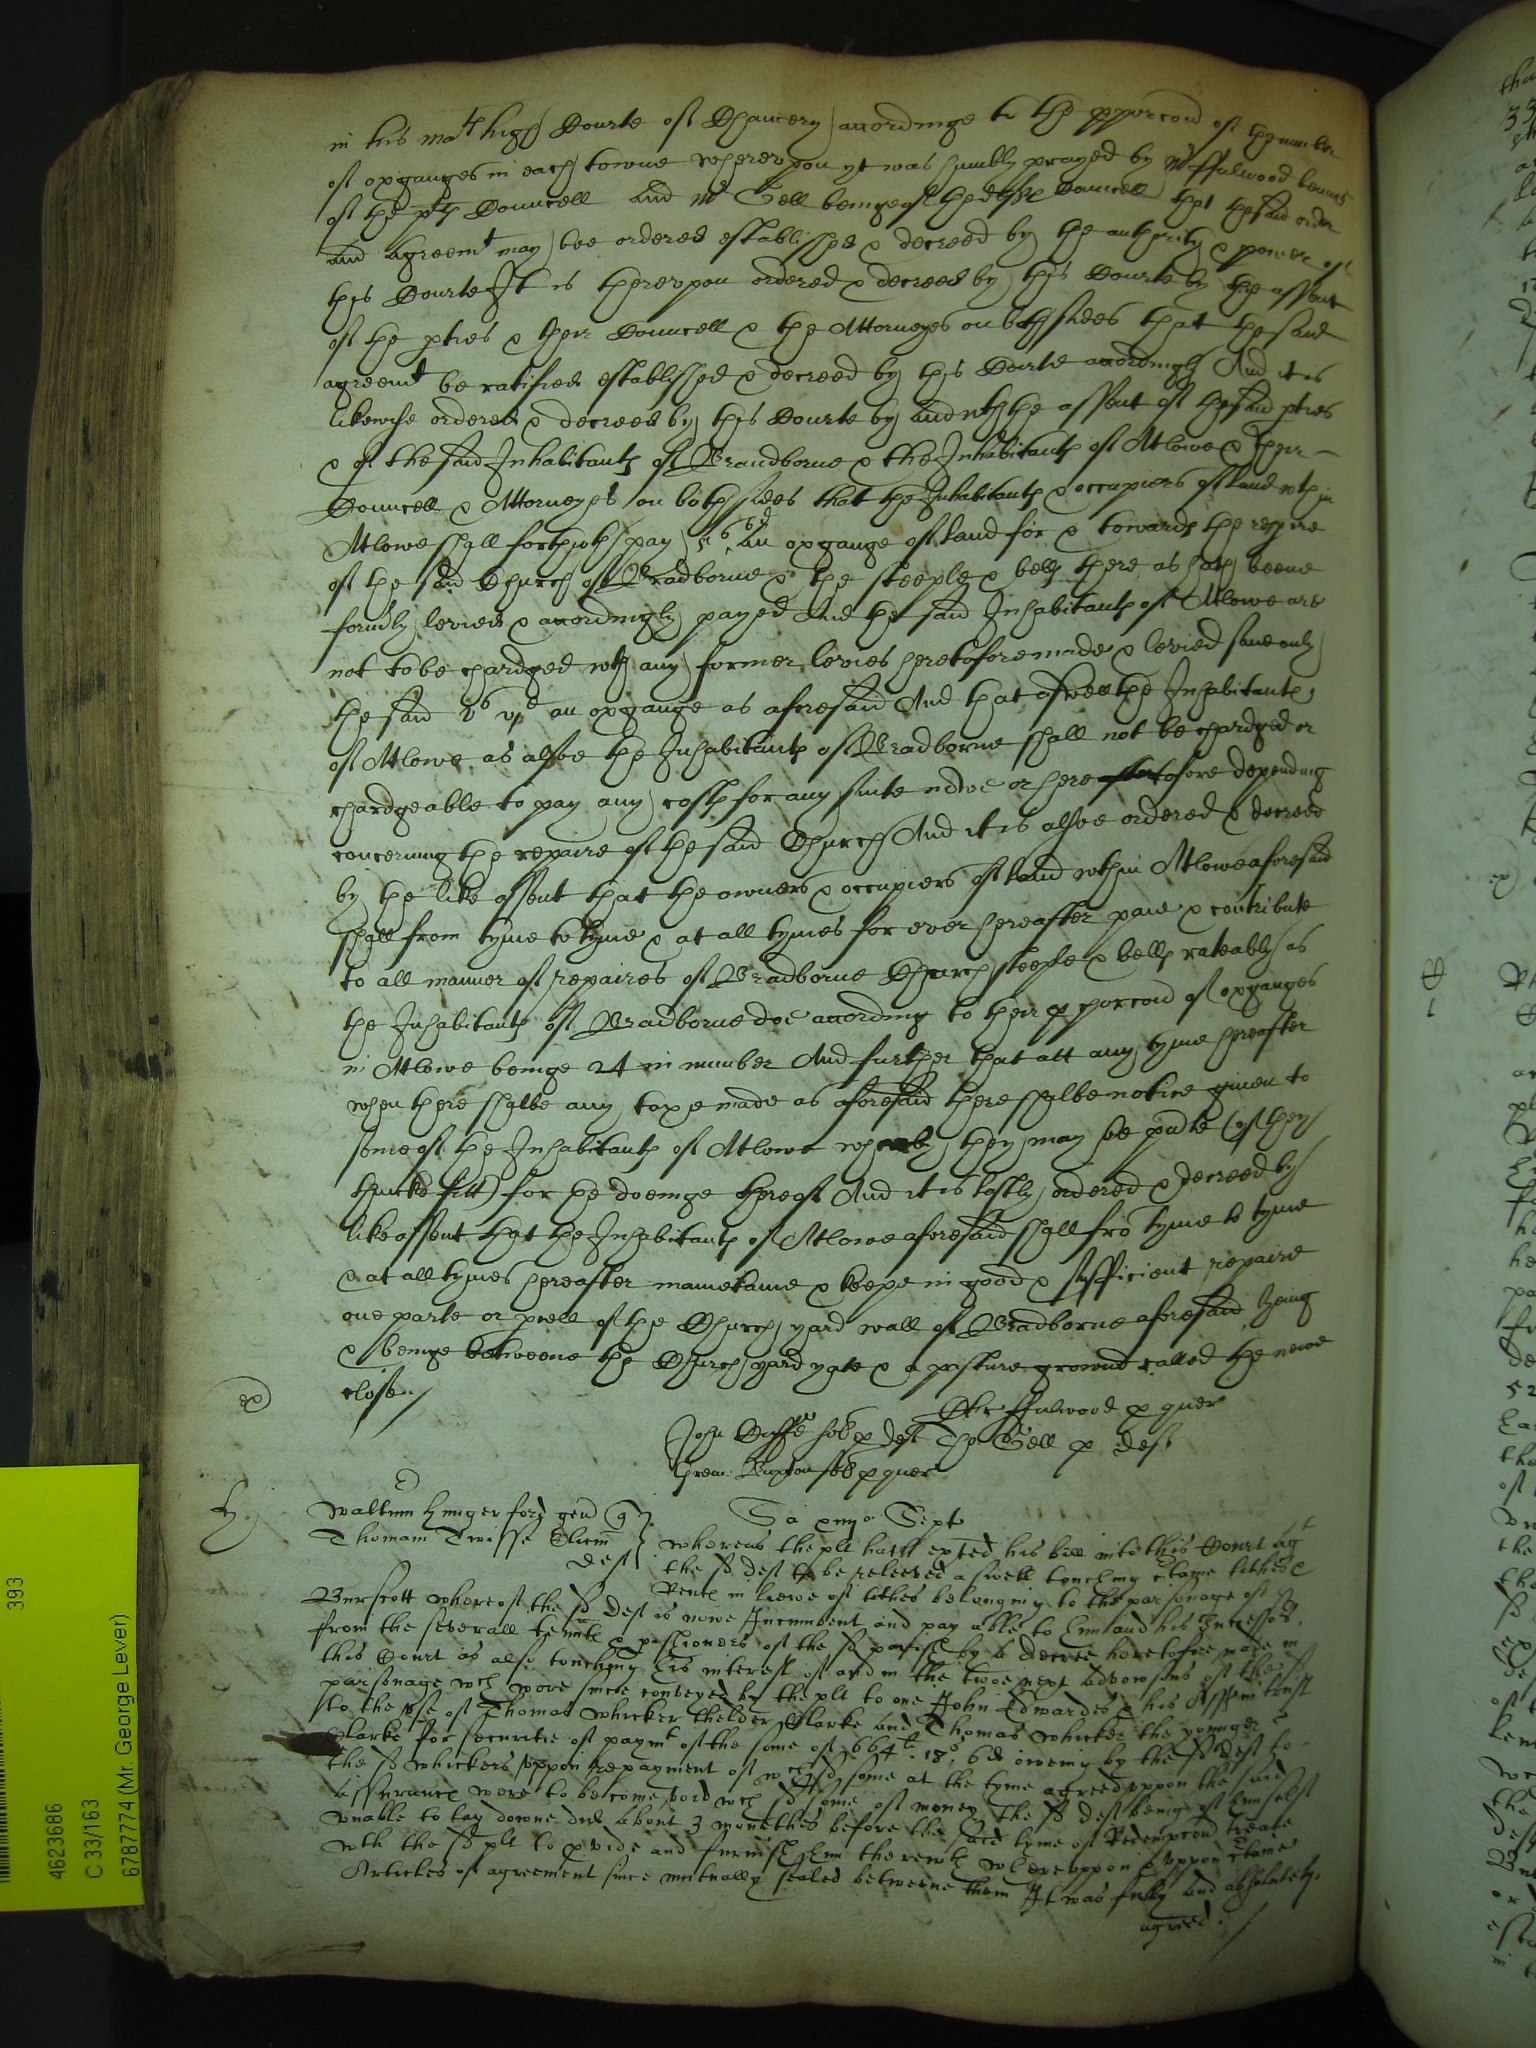 in his ma^ts high Courte of Chauncery accordinge to the pporcon of the number
of oxganges in each towne wherevpon yt was humbly prayed by M^r ffulwood beinge
of the plts Councell And M^r Gell beinge of the defts Councell that the said order
and Agreem^t may bee ordered established & decreed by the authority & power of
this Courte It is therevpon ordered & decreed by this Courte by the assent
of the pties & their Councell & the Attorneyes on both sides that the same
agreem^t be ratified established & decreed by this Courte accordingly And it is
likewise ordered & decreed by this Courte by and wth the assent of the said pties
& of the said Inhabitants of Bradborne & the Inhabitants of Atlowe & their
Councell & Attorneyes on both sides that the Inhabitants & occupiers of land wthin
Atlowe shall forthwth pay 5^s 6^d an oxgange of land for & towards the repaire
of the said Church of Bradborne & the steeple & bells there as hath beene
formly levied & accordingly payed And the said Inhabitants of Atlowe are
not to be chardged wth any former levies heretofore made & levied save only
the said v^s vj^d an oxgange as aforesaid And that aswell the Inhabitants
of Atlowe as alsoe the Inhabitants of Bradborne shall not be chardged or
chardgeable to pay any costs for any suite nowe or heretofore depending
concerning the repaire of the said Church And it is alsoe ordered & decreed
by the like assent that the owners & occupiers of land wthin Atlowe aforesaid
shall from tyme to tyme & at all tymes for ever hereafter paie & contribute
to all manner of repaires of Bradborne Church steeple & bells rateably as
the Inhabitants of Bradborne doe according to their pporcon of oxganges
in Atlowe beinge 24 in number And further that att any tyme hereafter
when there shalbe any taxe made as aforesaid there shalbe notice given to
some of the Inhabitants of Atlowe whereby they may be pnte (yf they
thincke fitt) for the doeinge thereof And it is lastly ordered & decreed by
like assent that the Inhabitants of Atlowe aforesaid shall fro tyme to tyme
& at all tymes hereafter mainetaine & keepe in good & sufficient repaire
one parte or pcell of the Church yard wall of Bradborne aforesaid lyeing
& beinge betweene the Church yard yate & a pasture ground called the newe
close./
ffulwood p quer
John p def Tho: Gell p def
Buxton p quer
Walterum Hungerford gen q
Thomam Twisse Cleric def
Sept
Whereas the plt hath exted his bill into this Court ag^t
the sd deft to be releeved aswell touching ctaine tithes &
Rents in liewe of tithes belonging to the parsonage of
Burscott whereof the sd deft is nowe Incumbent and payable to him and his Successors
from the severall tennts & pishioners of the sd parish by a decree heretofore made in
this Court as also touching his interest of and in the twoe next Advowsons of the sd
parsonage wch were since conveyed by the plt to one John Edwardes & his Assignes in trust
to the vse of Thomas Whicker thelder Clarke and Thomas Whicker the younger
Clarke for securitie of paym^t of the some of 664^li 18^s 6d oweing by the sd deft to
the sd Whickers vppon repayment of wch sd some at the tyme agreed vppon the said
assurance were to become void wch sd some of money the sd deft being of himself
vnable to lay downe did about 3 monethes before the said tyme of Redempcon treate
wth the sd plt to pvide and furnish him therewth wherevppon & vppon ctaine
Articles of agreement since mutually sealed betweene them It was fully and absolutely
agreed./
393
4623686
C 33/163
6787774 (Mr. George Lever)